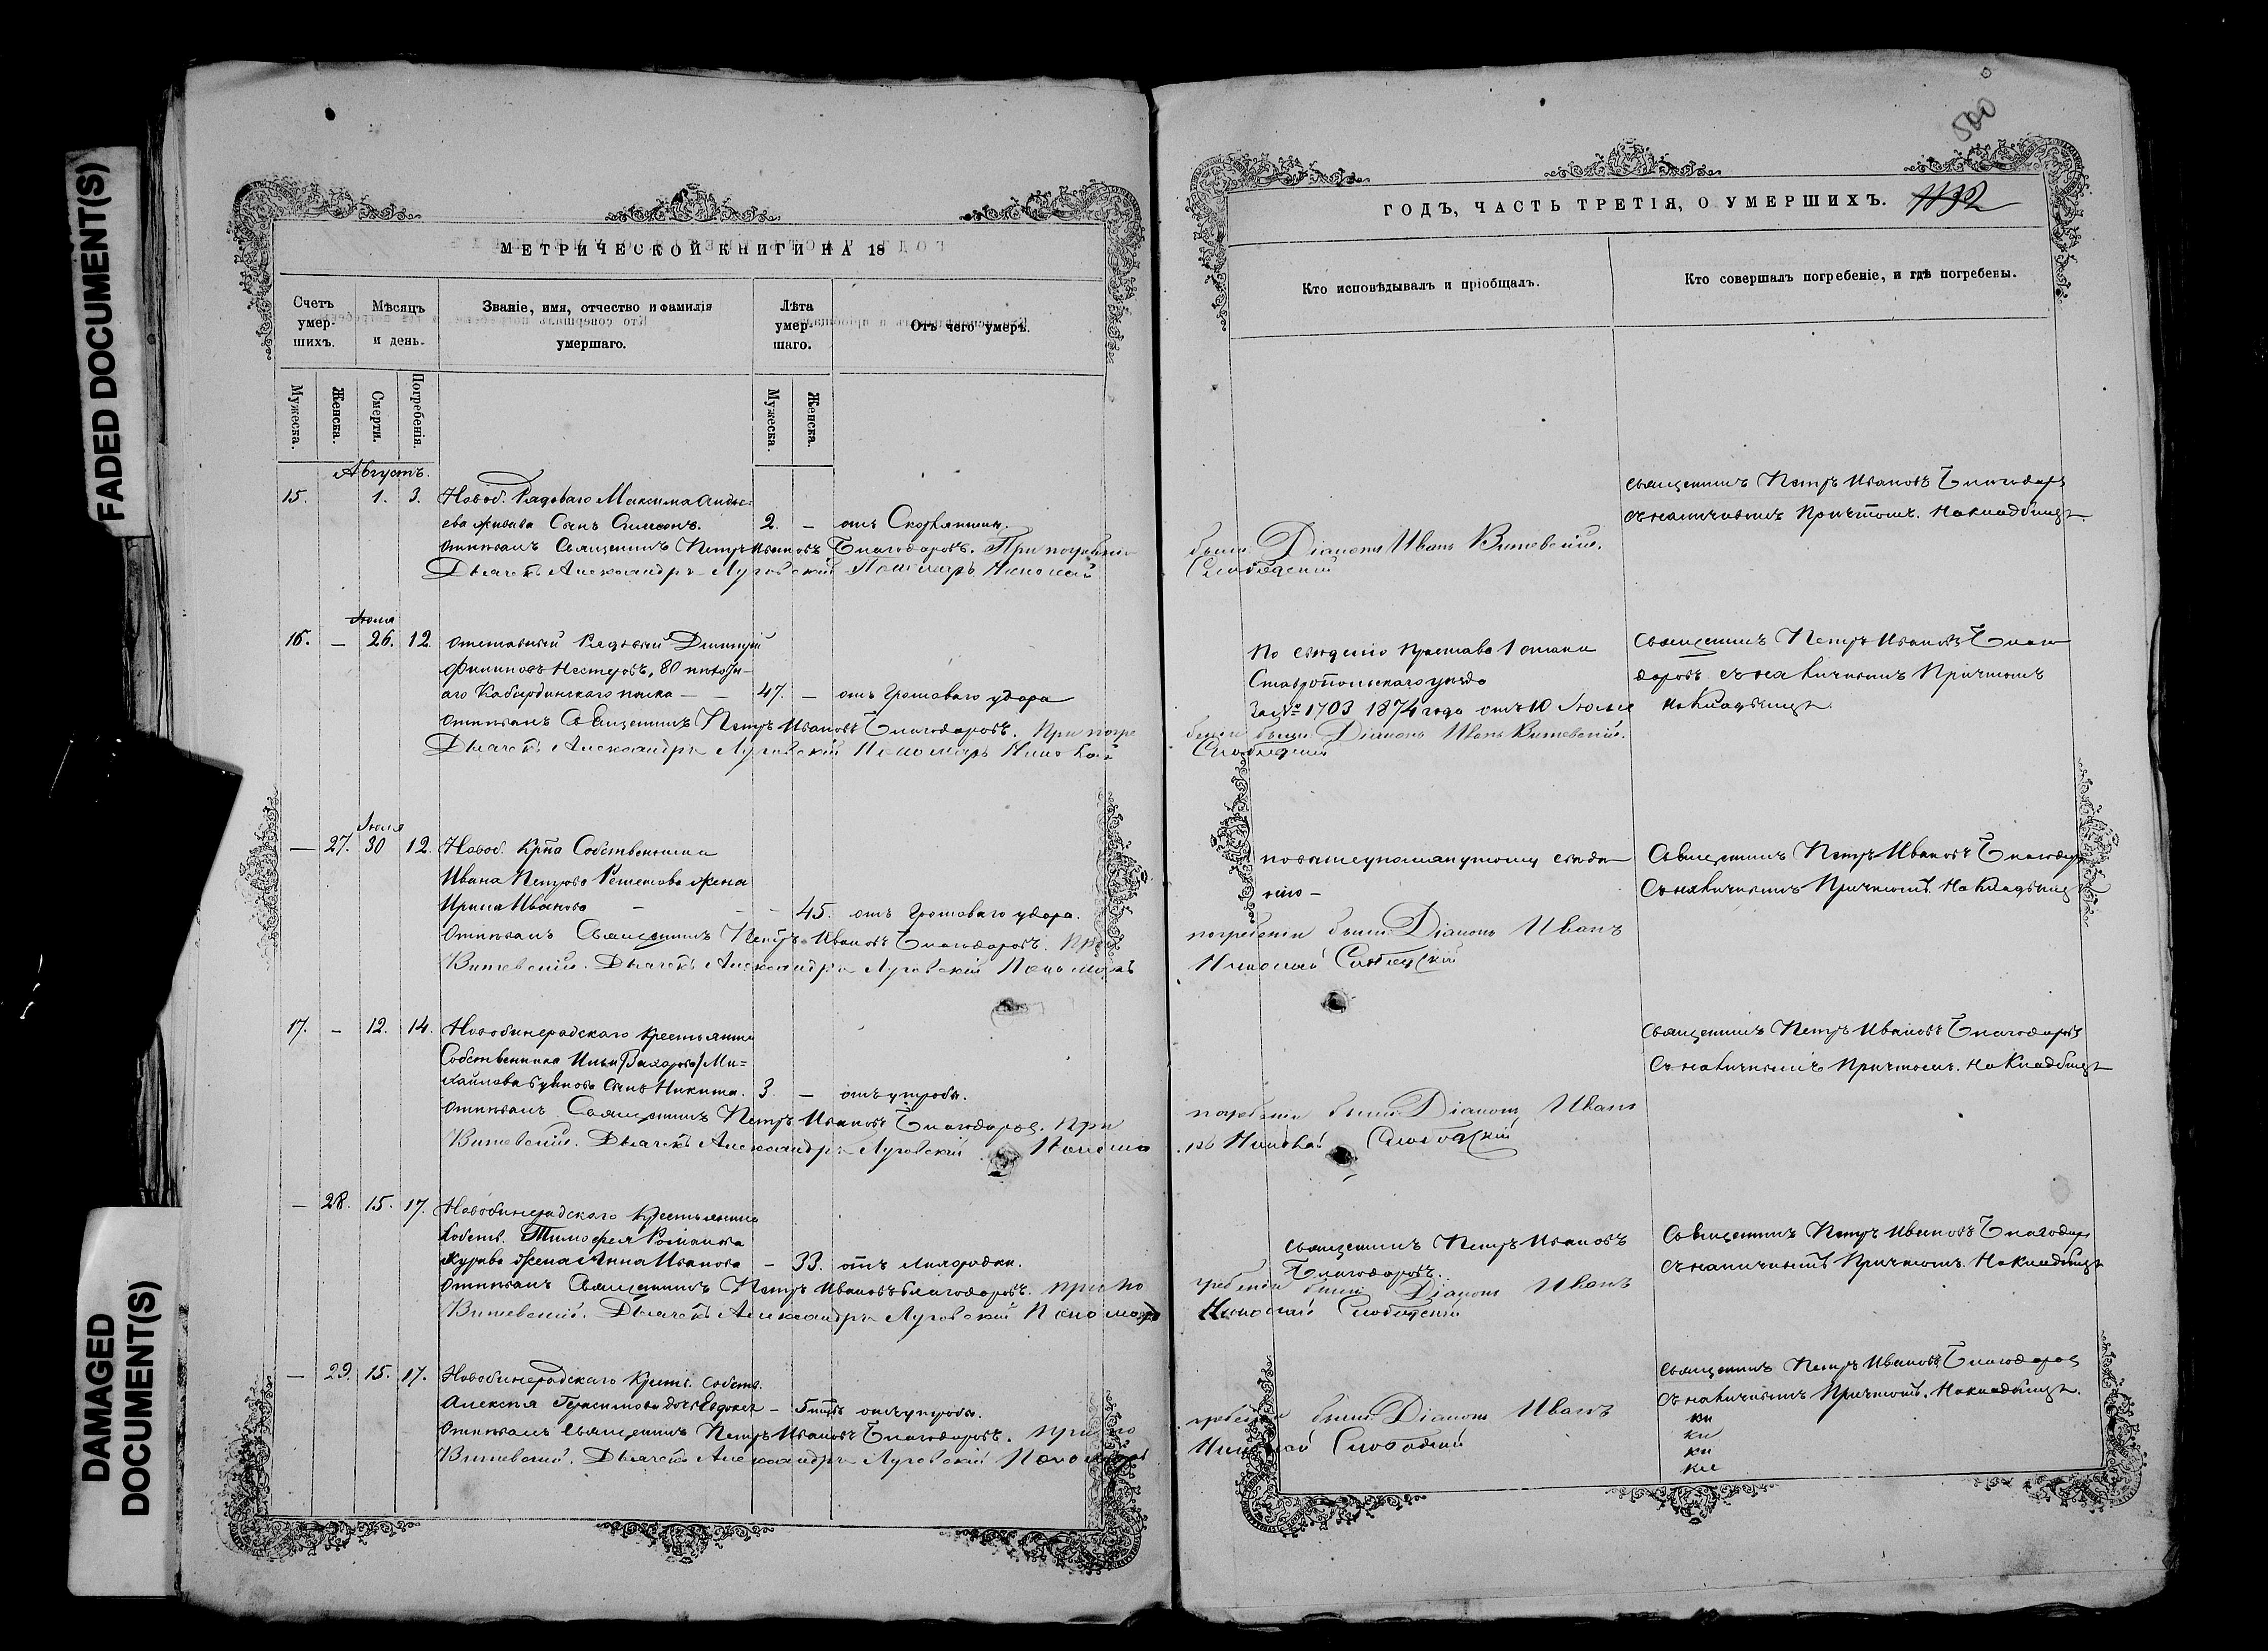 FADED DOCUMENT(S)
DAMAGED
DOCUMENT(S)
500
МЕТРИЧЕСКОЙ КНИГИ НА 18
Счетъ умер-шихъ.
Мѣсяцъ и день.
Званіе, имя, отчество и фамилія умершаго.
Лѣта умер-шаго.
Отъ чего умеръ.
Мужеска.
Женска.
Смерти.
Погребенія.
Мужеска.
Женска.
Августъ.
15. 1. 3. Новоб. Рядоваго Максима Андре-
ева сынъ Симеонъ. 2. – отъ
Отпѣвалъ Священникъ Петръ Ивановъ Благодаровъ. При погребеніи
Дьячекъ Александръ Луговскій Пономарь Николай
Іюля
16. – 26. 12. Отставной Рядовый Димитрій
Филиповъ Нестеровъ, 80 пѣхотн-
аго Кабардинскаго полка – – 47. – отъ Громоваго удара
Отпѣвалъ Священникъ Петръ Ивановъ Благодаровъ. При погре
Дьячекъ Александръ Луговскій Пономарь Николай
Іюля
– 27. 30 12. Новоб. Крⷭ҇на Собственника
Ивана Петрова жена
Ирина Иванова – – – 45. отъ Громоваго удара.
Отпѣвалъ Священникъ Петръ Ивановъ Благодаровъ. При
Витевскій. Дьячекъ Александръ Луговскій Пономарь
17. – 12. 14. Нововинерадскаго Крестьянина
Собственника Ильи /Захарова/ Ми=
хайлова сынъ Никита. 3. – отъ утробы.
Отпѣвалъ Священникъ Петръ Ивановъ Благодаров. При
Витевскій. Дьячекъ Александръ Луговскій Понома
– 28. 15. 17. Новобинерадскаго Крестьянина
Собств. Тимофея Романова
жена Анна Иванова – 33. отъ лихорадки.
Отпѣвалъ Священникъ Петръ Ивановъ Благодаровъ. При по
Витевскій. Дьячекъ Александръ Луговскій Пономарь
– 29. 15. 17. Новобинерадскаго Крест. Собств.
Алексѣя Герасимова дочь – отъ утробы.
Отпѣвалъ Священникъ Петръ Ивановъ Благодаровъ. При по
Витевскій. Дьячекъ Александръ Луговскій Пономарь
ГОДЪ, ЧАСТЬ ТРЕТІЯ, О УМЕРШИХЪ.
Кто исповѣдывалъ и пріобщалъ.
Кто совершалъ погребеніе, и гдѣ погребены.
Священникъ Петръ Ивановъ Благодаров
съ наличнымъ Причтомъ. На кладбищѣ.
были Діаконъ Иванъ Витевскій.
Слободскій
По свѣденію Пристава 1 стана
Ставропольскаго уѣзда
За № 1703 1874 года отъ 10 Іюля
Священникъ Петръ Ивановъ Благо
даровъ съ наличнымъ Причтомъ
на Кладбищѣ.
беніи были Діаконъ Иванъ Витевскій.
Слободскій
по вышеупомянутому свѣде
нію –
Священникъ Петръ Ивановъ Благодаров
Съ наличнымъ Причтомъ. На Кладбищѣ
погребеніи были Діаконъ Иванъ
Николай Слободскій
Священникъ Петръ Ивановъ Благодаровъ
Съ наличнымъ Причтомъ. На Кладбищѣ
погребеніи были Діаконъ Иванъ
рь Николай Слободскій
Священникъ Петръ Ивановъ
Благодаровъ.
Священникъ Петръ Ивановъ Благодаров
Съ наличнымъ Причтомъ. На Кладбищѣ
гребеніи были Діаконъ Иванъ
Николай Слободскій
Священникъ Петръ Ивановъ Благодаров
Съ наличнымъ Причтомъ. На кладбищѣ.
гребеніи были Діаконъ Иванъ
Николай Слободскій